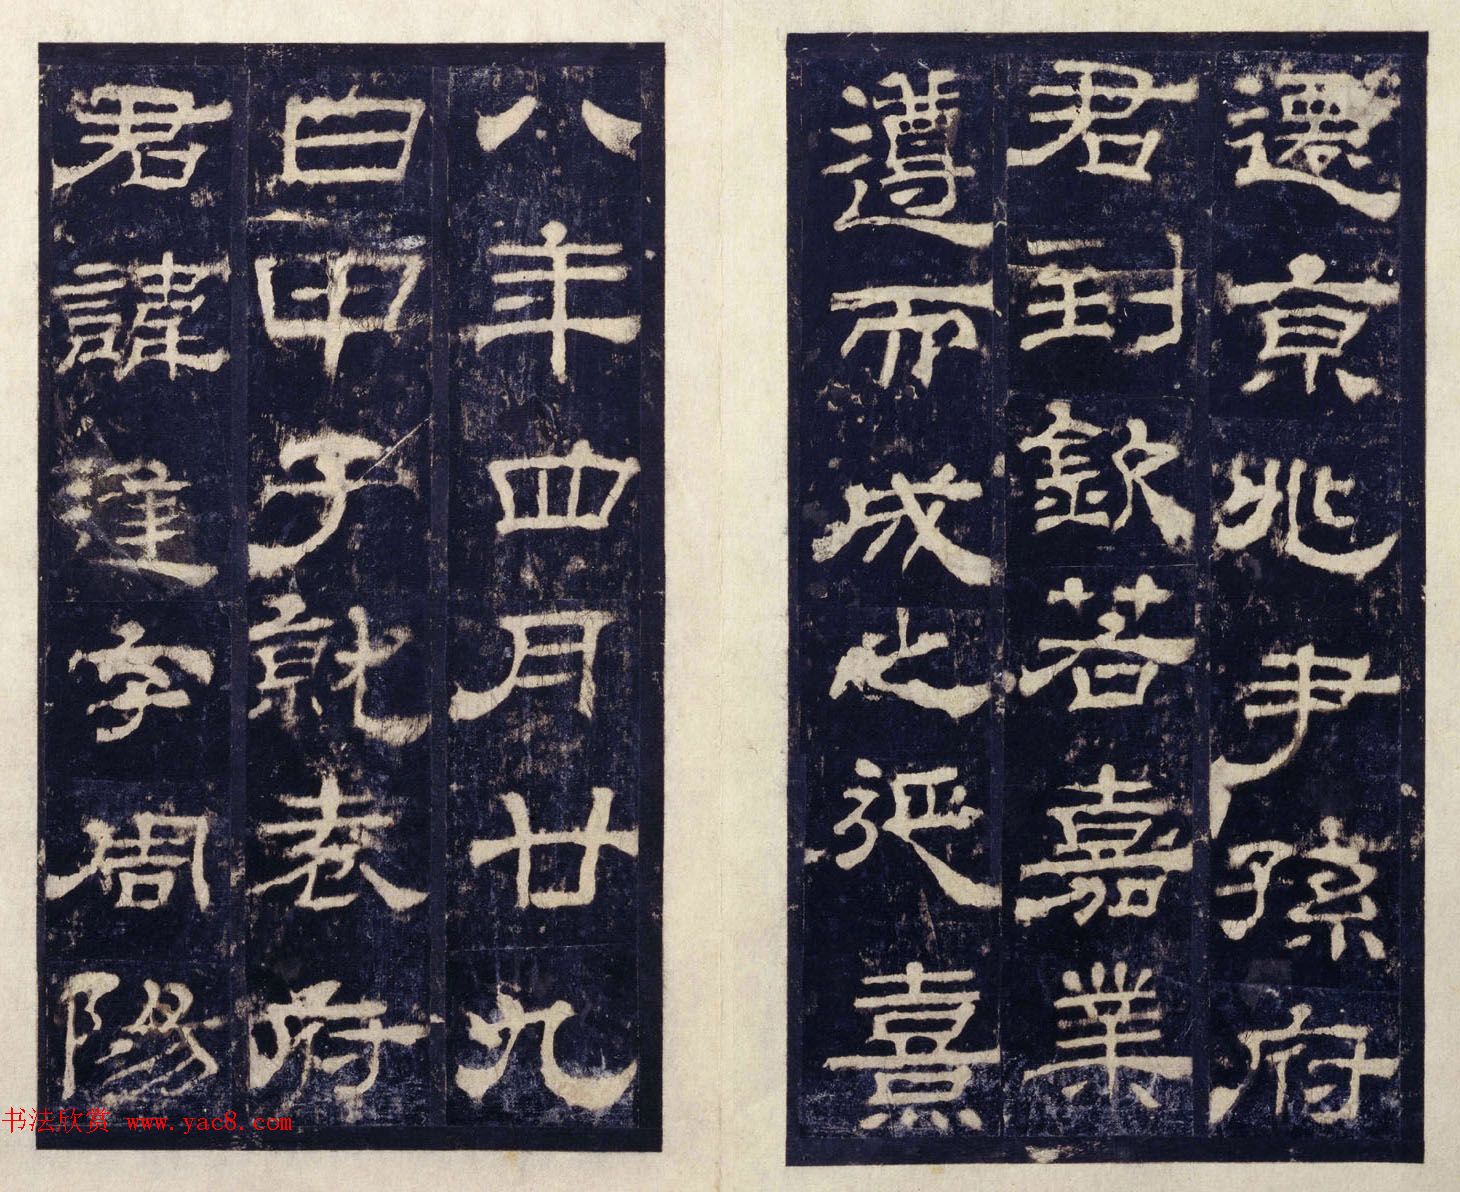 遷京兆尹孫府
君到欽若嘉業
遵而成之延熹
八年四月廿九
日甲子就袁府
君諱逢字周陽
书法欣赏 www.yac8.com